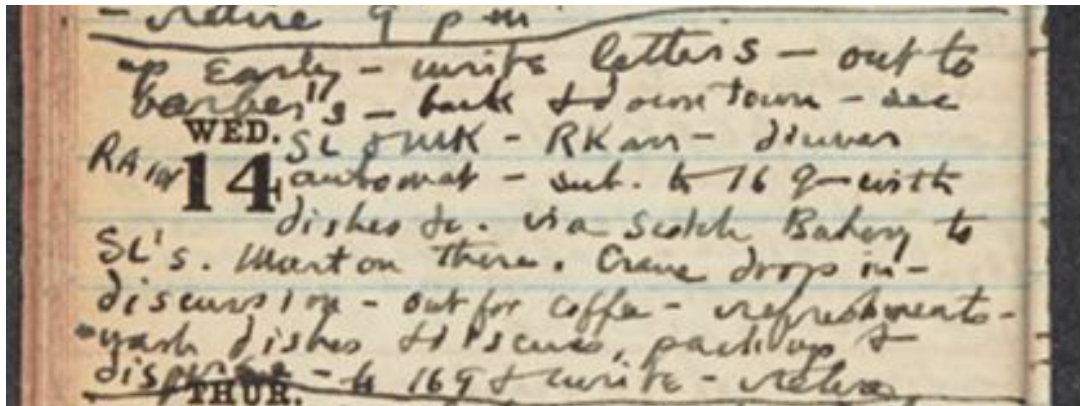 — retire 9 p m
up Early — write letters — out to
barber's — back & down town — see
WED.
SL & MK — RK arr — dinner
RAIN
14
automat — sub. to 169 — with
dishes &c. via Scotch Bakery to
SL's. Morton there. Crane drops in —
discussion — out for coffee — refreshments —
wash dishes & discuss, pack up &
disperse — to 169 & write — retire
THUR.